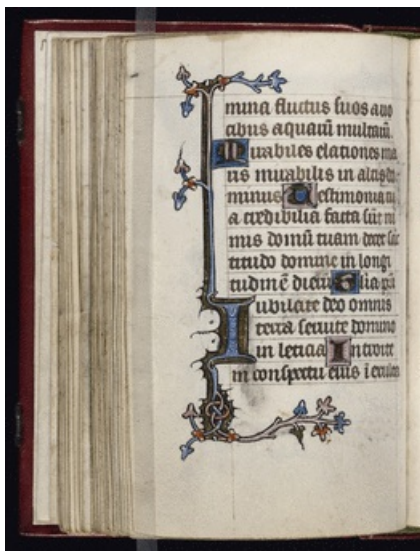 mina fluctus suos a uo
cibus aquaru multaru.
Mirabiles elationes ma
ris mirabilis in altis do
minus Testimonia tu
a credibilia facta sūt ni
mis domū tuam decet sāc
titudo domine in longi
tudinē dierū Glia pr̄i
Iubilate deo omnis
terra seruite domino
in leticia Introite
in conspectu eius ī exulta